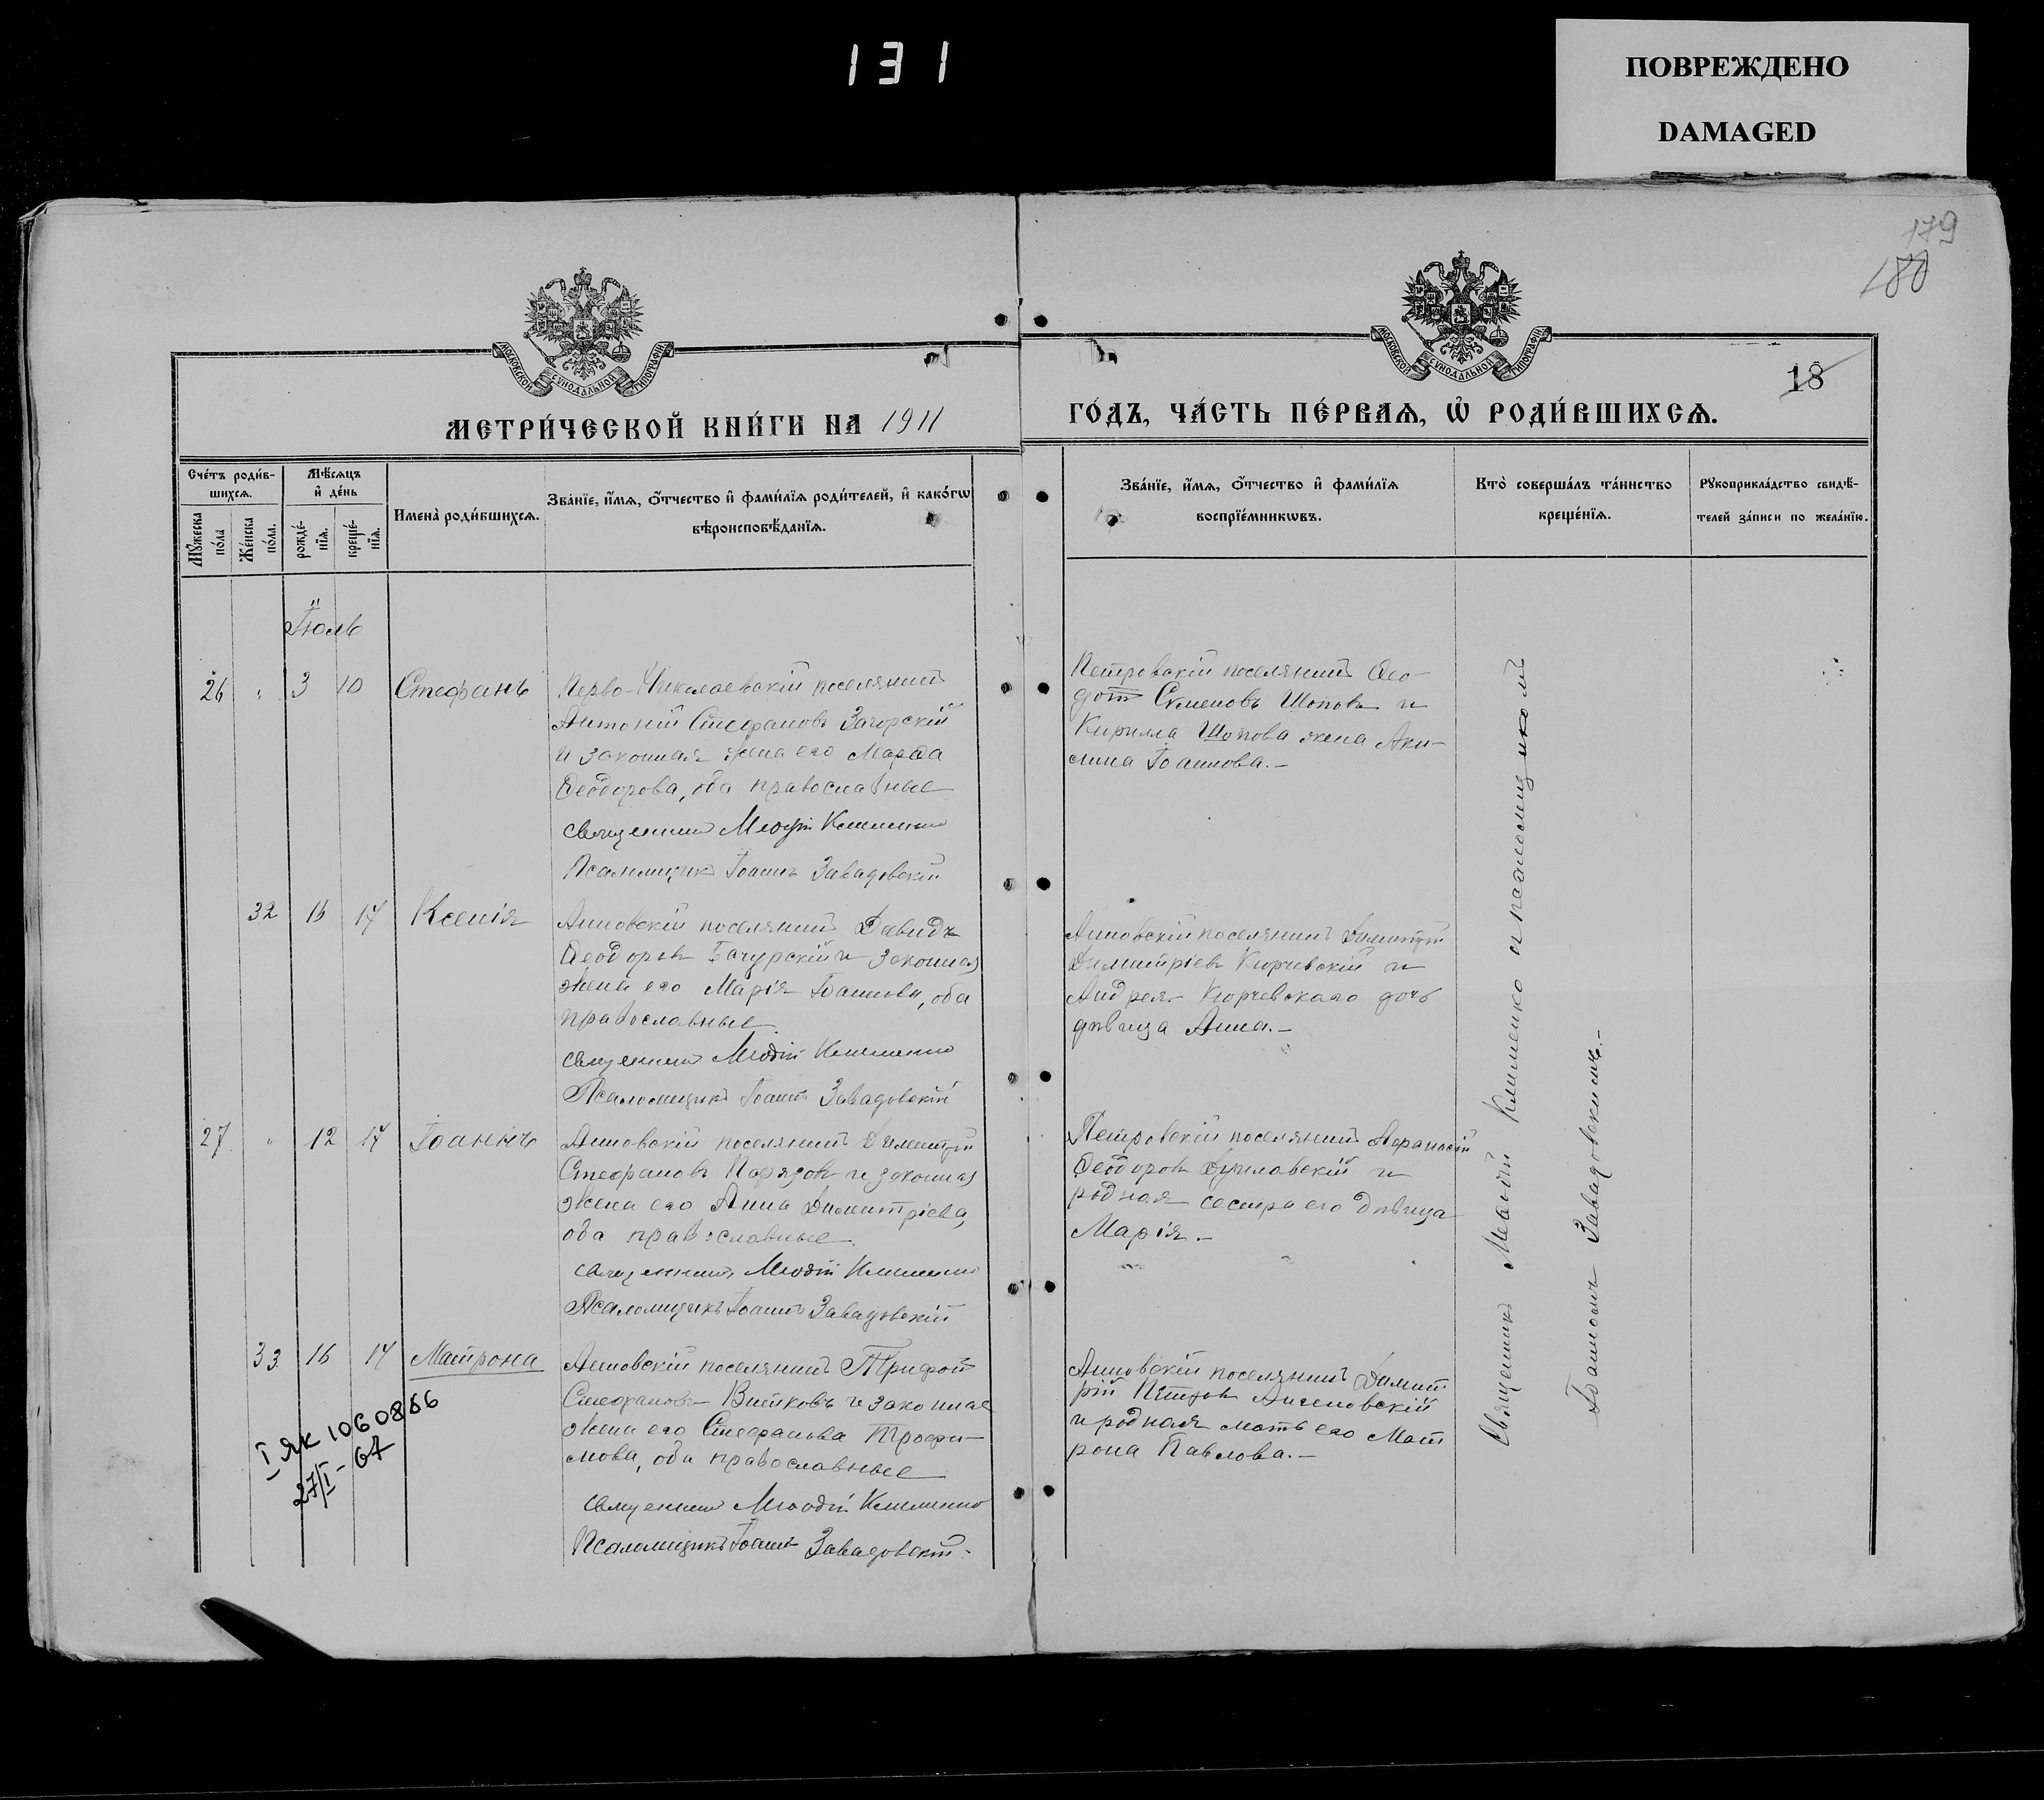 131
ПОВРЕЖДЕНО
DAMAGED
179
180
МОСКОВСКОЙ СУНОДАЛЬНОЙ ТИПОГРАФІИ
МОСКОВСКОЙ СУНОДАЛЬНОЙ ТИПОГРАФІИ
18
МЕТРИ́ЧЕСКОЙ КНИ́ГИ НА 1911
ГО́ДЪ, ЧА́СТЬ ПЕ́РВАѦ, Ѽ РОДИ́ВШИХСѦ.
Сче́тъ роди́в-
шихсѧ.
Мꙋ́жеска
по́ла
Же́нска
по́ла.
Мѣ́сѧцъ
и҆ де́нь
рожде́-
нїѧ.
креще́-
нїѧ.
Имена̀ роди́вшихсѧ.
Зва́нїе, и҆́мѧ, ѻ҆́тчество и҆ фами́лїѧ роди́телей, и҆ како́гѡ
вѣроисповѣ́данїѧ.
Зва́нїе, и҆́мѧ, ѻ҆́тчество и҆ фами́лїѧ
воспрїе́мникѡвъ.
Кто̀ соверша́лъ та́инство
креще́нїѧ.
Рꙋкоприкла́дство свидѣ́-
телей за́писи по жела́нїю.
Іюль
26 " 3 10 Стефанъ
Перво-Николаевскій поселянинъ
Антоній Стефановъ Загорскій
и законная жена его Марѳа
Ѳеодорова, оба православные
Священникъ Меѳодій Клименко
Псаломщикъ Іоаннъ Завадовскій
Петровскій поселянинъ Ѳео-
дотъ Семеновъ Шопова и
Кирилла Шопова жена Аки-
лина Іоаннова.-
32 16 17 Ксенія
Анновскій поселянинъ Давидъ
Ѳеодоровъ Бачурскій и законная
жена его Марія Іоаннова, оба
православные
Священникъ Меѳодій Клименко
Псаломщикъ Іоаннъ Завадовскій
Анновскій поселянинъ Димитрій
Димитріевъ Кюрчевскій и
Андрея Кюрчевскаго дочь
дѣвица Анна.-
27 " 12 17 Іоаннъ
Анновскій поселянинъ Димитрій
Стефановъ и законная
жена его Анна Димитріева,
оба православные.
Священникъ Меѳодій Клименко
Псаломщикъ Іоаннъ Завадовскій
Петровскій поселянинъ Аѳанасій
Ѳеодоровъ и
родная сестра его дѣвица
Марія.-
33 16 17 Матрона
Анновскій поселянинъ Трифонъ
Стефановъ Витковъ и законная
жена его Стефанова Трофи-
мова, оба православные
Священникъ Меѳодій Клименко
Псаломщикъ Іоаннъ Завадовскій.
Анновскій поселянинъ Димит
рій Петровъ
и родная мать его Мат
рона Павлова.-
I ЯК 1060866
27/I - 67
Священникъ Меѳодій Клименко и псаломщикомъ
Іоанномъ Завадовскимъ.-